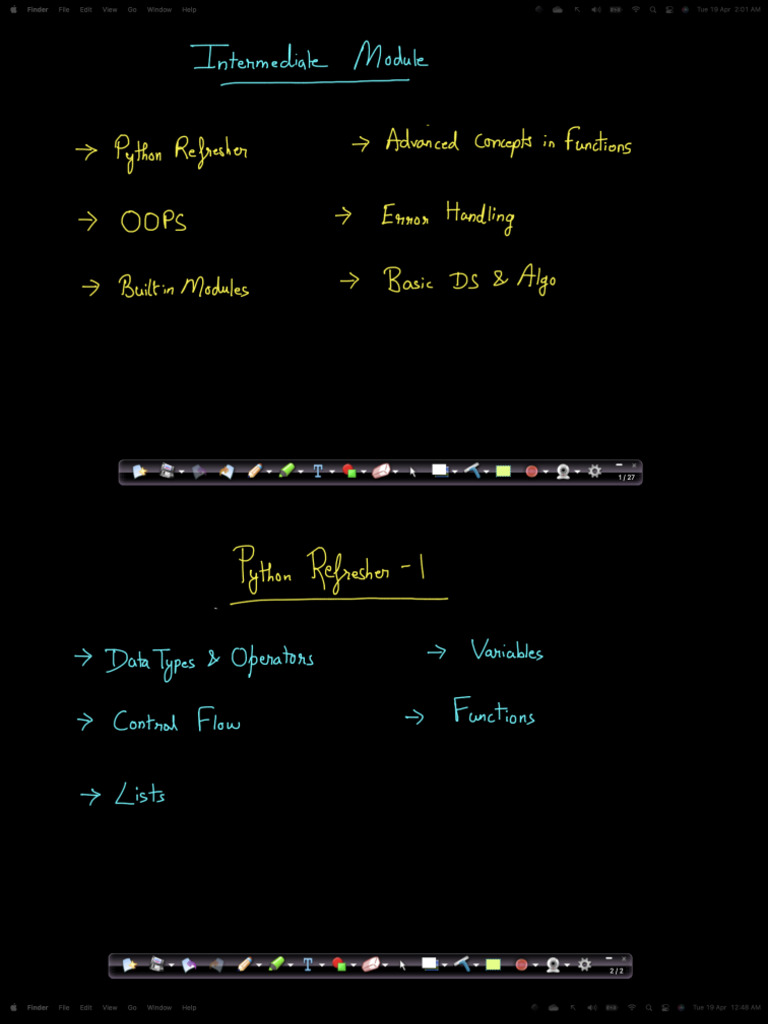 Finder File Edit View Go Window Help Tue 19 Apr 2:01 AM
Intermediate Module
→ Python Refresher → Advanced Concepts in Functions
→ OOPS → Error Handling
→ Builtin Modules → Basic DS & Algo
T
1 / 27
Python Refresher - 1
→ Data Types & Operators → Variables
→ Control Flow → Functions
→ Lists
T
2 / 2
Finder File Edit View Go Window Help Tue 19 Apr 12:48 AM